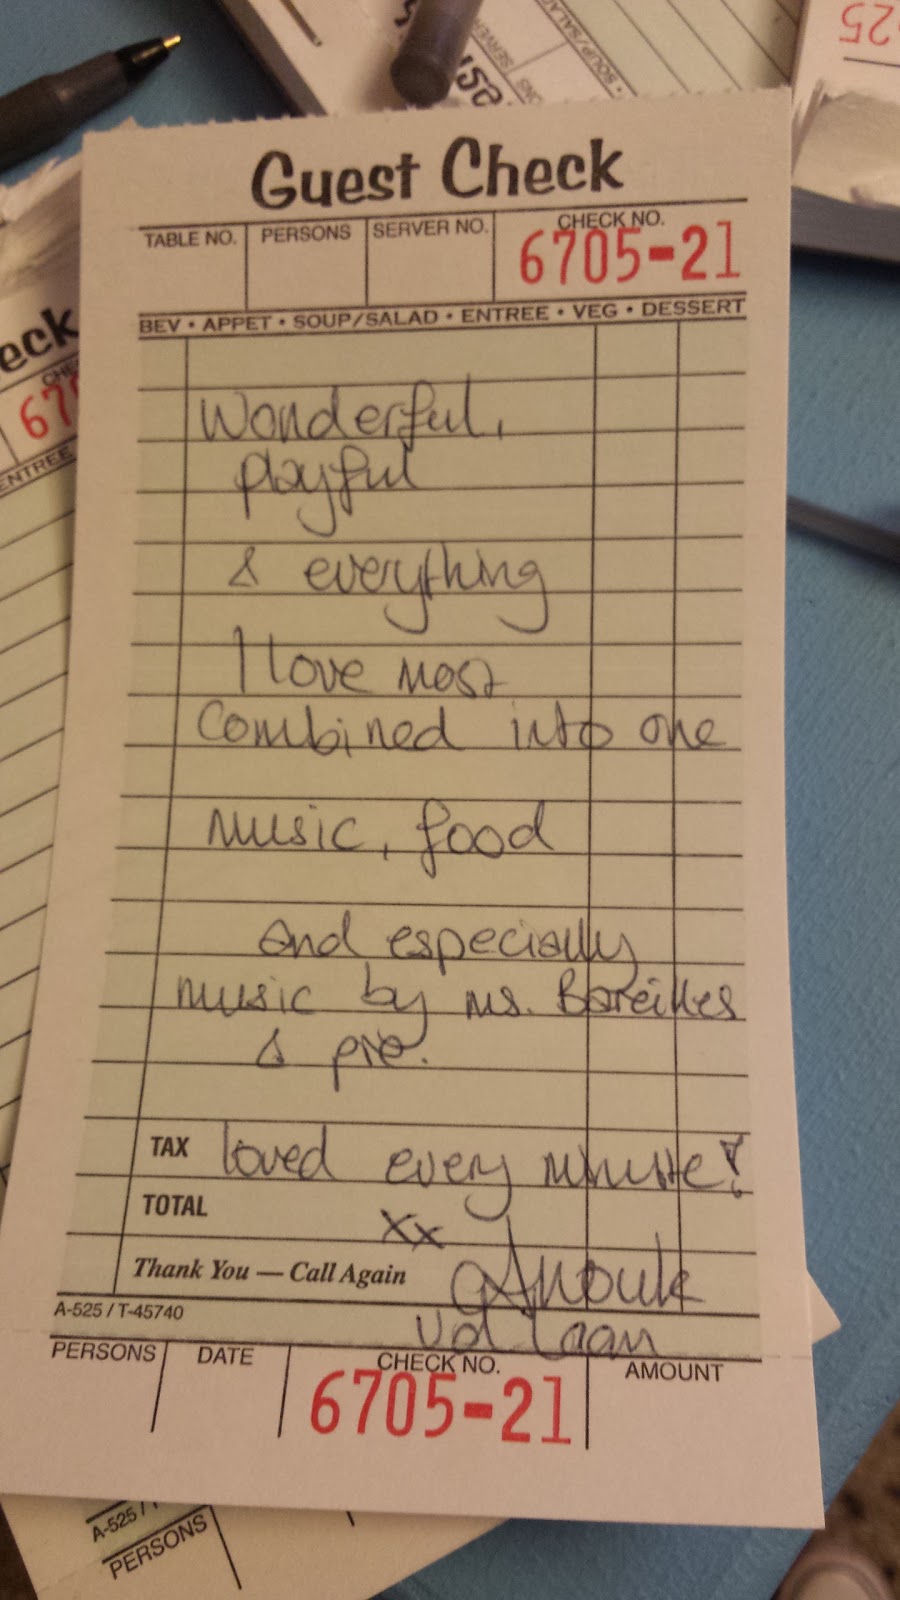 Guest Check
TABLE NO. PERSONS SERVER NO. CHECK NO.
6705-21
BEV • APPET • SOUP/SALAD • ENTREE • VEG • DESSERT
Wonderful,
playful
& everything
I love most
combined into one
music, food
and especially
music by ms. Bareilles
& pie.
TAX loved every minute!
TOTAL xx
Thank You — Call Again Anouk
A-525 / T-45740 vd Laan
PERSONS DATE CHECK NO. AMOUNT
6705-21
eck
CHE
670
ENTREE
SERVER
SOUP/SALAD
25
A-525 / T
PERSONS